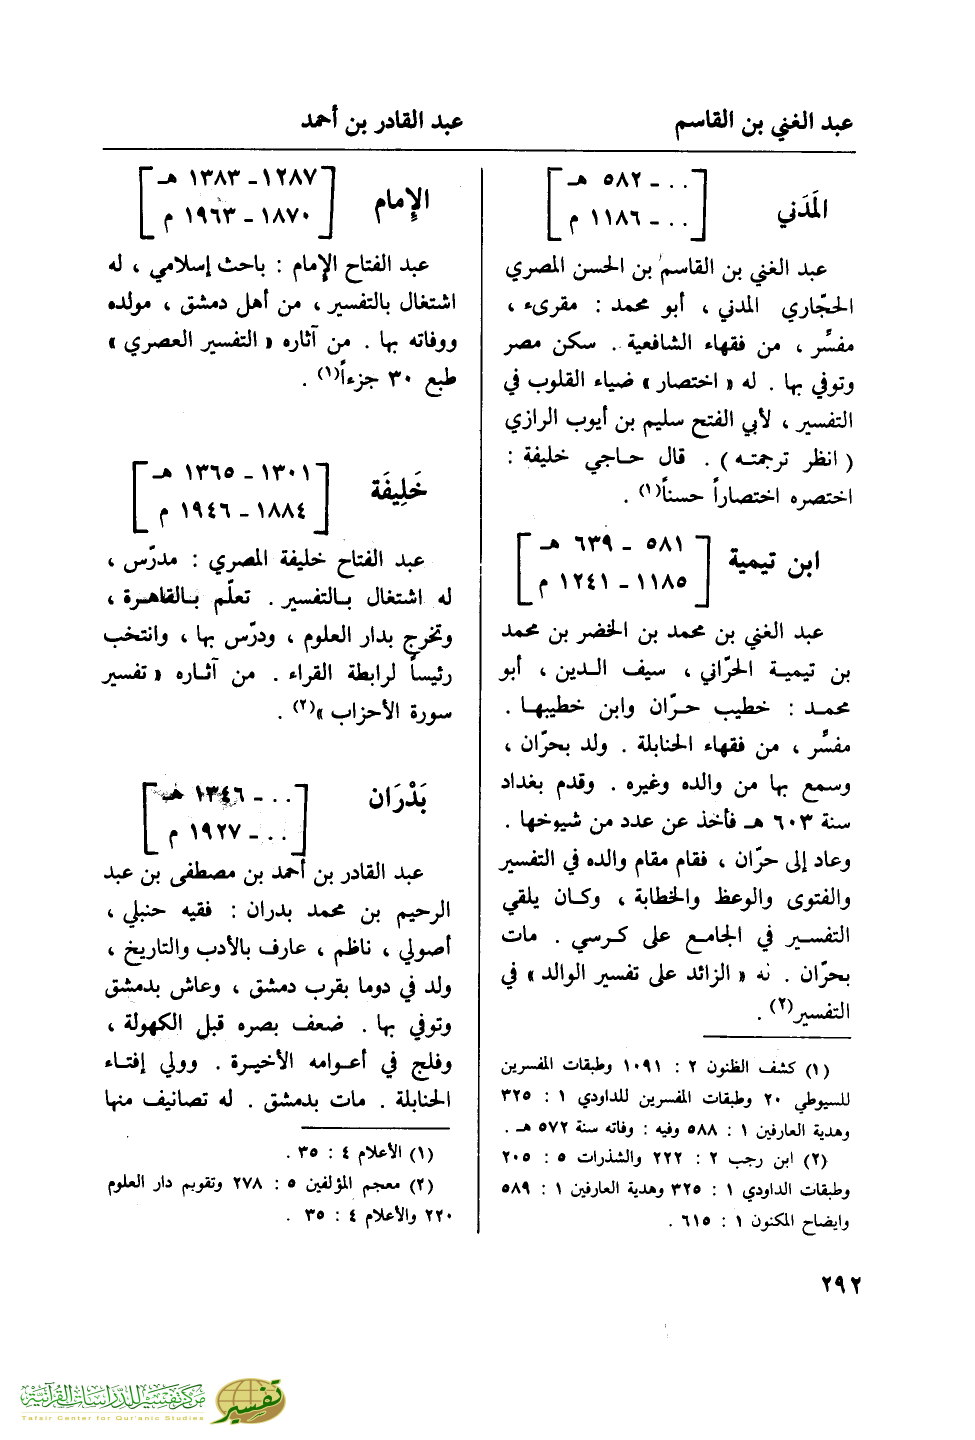 عبد الغني بن القاسم
عبد القادر بن أحمد
المَدَني
[ . . ـ ٥٨٢ هـ
. . ـ ١١٨٦ م ]
عبد الغني بن القاسم بن الحسن المصري
الحجّاري المدني ، أبو محمد : مقرىء ،
مفسِّر ، من فقهاء الشافعية . سكن مصر
وتوفي بها . له « اختصار » ضياء القلوب في
التفسير ، لأبي الفتح سليم بن أيوب الرازي
( انظر ترجمته ) . قال حاجي خليفة :
اختصره اختصاراً حسناً(١) .
ابن تيمية
[ ٥٨١ ـ ٦٣٩ هـ
١١٨٥ ـ ١٢٤١ م ]
عبد الغني بن محمد بن الخضر بن محمد
بن تيمية الحرّاني ، سيف الدين ، أبو
محمد : خطيب حرّان وابن خطيبها .
مفسِّر ، من فقهاء الحنابلة . ولد بحرّان ،
وسمع بها من والده وغيره . وقدم بغداد
سنة ٦٠٣ هـ فأخذ عن عدد من شيوخها .
وعاد إلى حرّان ، فقام مقام والده في التفسير
والفتوى والوعظ والخطابة ، وكان يلقي
التفسير في الجامع على كرسي . مات
بحرّان . له « الزائد على تفسير الوالد » في
التفسير(٢) .
(١) كشف الظنون ٢ : ١٠٩١ وطبقات المفسرين
للسيوطي ٢٠ وطبقات المفسرين للداودي ١ : ٣٢٥
وهدية العارفين ١ : ٥٨٨ وفيه : وفاته سنة ٥٧٢ هـ .
(٢) ابن رجب ٢ : ٢٢٢ والشذرات ٥ : ٢٠٥
وطبقات الداودي ١ : ٣٢٥ وهدية العارفين ١ : ٥٨٩
وايضاح المكنون ١ : ٦١٥ .
الإمام
[ ١٢٨٧ ـ ١٣٨٣ هـ
١٨٧٠ ـ ١٩٦٣ م ]
عبد الفتاح الإمام : باحث إسلامي ، له
اشتغال بالتفسير ، من أهل دمشق ، مولده
ووفاته بها . من آثاره « التفسير العصري »
طبع ٣٠ جزءاً(١) .
خَلِيفَة
[ ١٣٠١ ـ ١٣٦٥ هـ
١٨٨٤ ـ ١٩٤٦ م ]
عبد الفتاح خليفة المصري : مدرّس ،
له اشتغال بالتفسير . تعلّم بالقاهرة ،
وتخرج بدار العلوم ، ودرّس بها ، وانتخب
رئيساً لرابطة القراء . من آثاره « تفسير
سورة الأحزاب »(٢) .
بَدْرَان
[ . . ـ ١٣٤٦ هـ
. . ـ ١٩٢٧ م ]
عبد القادر بن أحمد بن مصطفى بن عبد
الرحيم بن محمد بدران : فقيه حنبلي ،
أصولي ، ناظم ، عارف بالأدب والتاريخ ،
ولد في دوما بقرب دمشق ، وعاش بدمشق
وتوفي بها . ضعف بصره قبل الكهولة ،
وفلج في أعوامه الأخيرة . وولي إفتاء
الحنابلة . مات بدمشق . له تصانيف منها
(١) الأعلام ٤ : ٣٥ .
(٢) معجم المؤلفين ٥ : ٢٧٨ وتقويم دار العلوم
٢٢٠ والأعلام ٤ : ٣٥ .
٢٩٢
مركز تفسير للدراسات القرآنية
Tafsir Center for Qur'anic Studies
تفسير